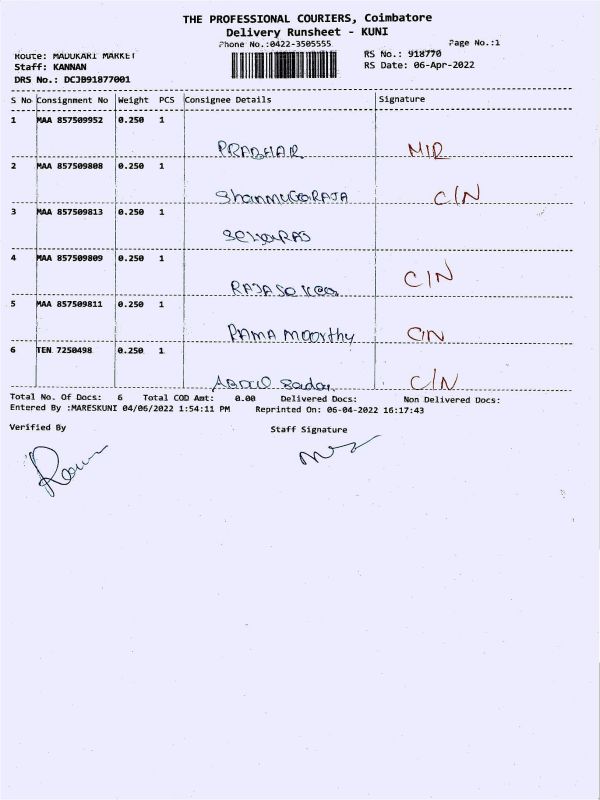 THE PROFESSIONAL COURIERS, Coimbatore
Delivery Runsheet - KUNI
Phone No.:0422-3505555
Page No.:1
Route: MADUKARI MARKET
RS No.: 918770
Staff: KANNAN
RS Date: 06-Apr-2022
DRS No.: DCJB91877001
S No Consignment No Weight PCS Consignee Details Signature
1 MAA 857509952 0.250 1
PRABHAR MIR
2 MAA 857509808 0.250 1
ShanmugaRAJA C/N
3 MAA 857509813 0.250 1
4 MAA 857509809 0.250 1
C/N
5 MAA 857509811 0.250 1
RAMA Moorthy C/N
6 TEN 7250498 0.250 1
C/N
Total No. Of Docs: 6 Total COD Amt: 0.00 Delivered Docs: Non Delivered Docs:
Entered By :MARESKUNI 04/06/2022 1:54:11 PM Reprinted On: 06-04-2022 16:17:43
Verified By Staff Signature